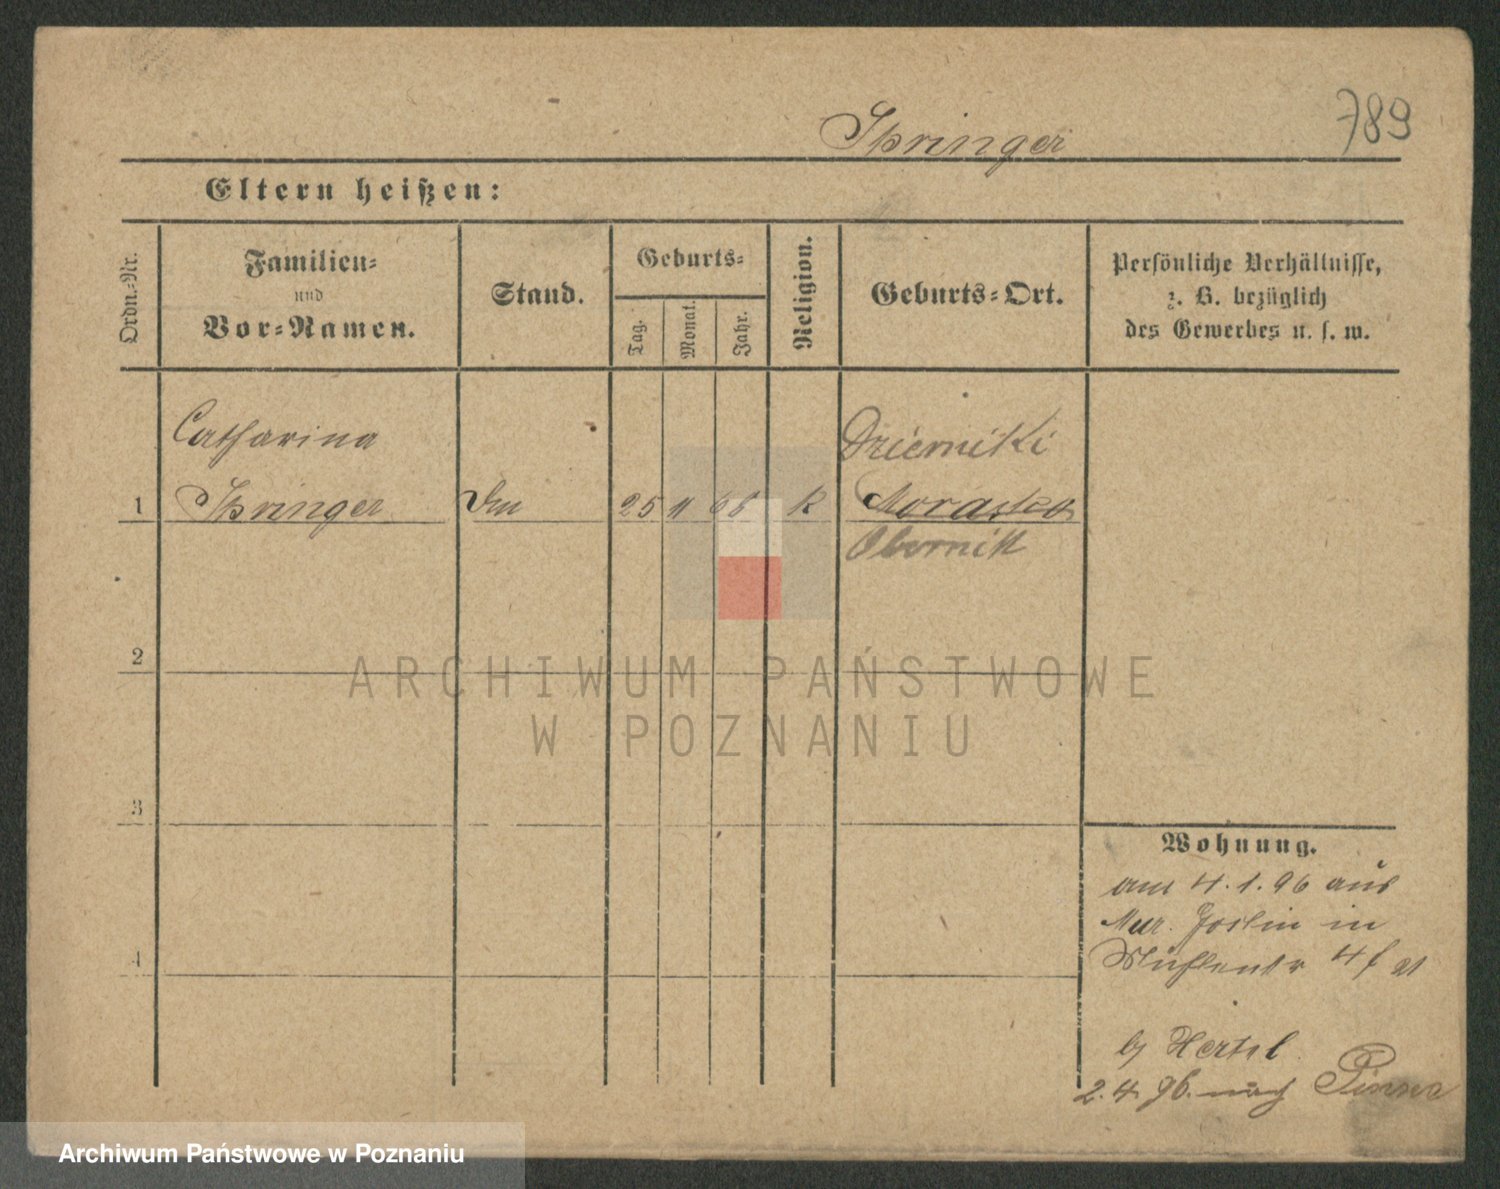 789
Springer
Eltern heißen:
Ordn.-Nr.
Familien-
und
Vor-Namen.
Stand.
Geburts-
Tag.
Monat.
Jahr.
Religion.
Geburts-Ort.
Persönliche Verhältnisse,
z. B. bezüglich
des Gewerbes u. s. w.
Catharina
1 Springer 25 11 68 k Morasko
Obornik
2
3
4
Wohnung.
am 4.1.96 aus
in
Mühlenstr 4
b/ Hertel
2.4.96. nach Pinne
ARCHIWUM PAŃSTWOWE
W POZNANIU
Archiwum Państwowe w Poznaniu